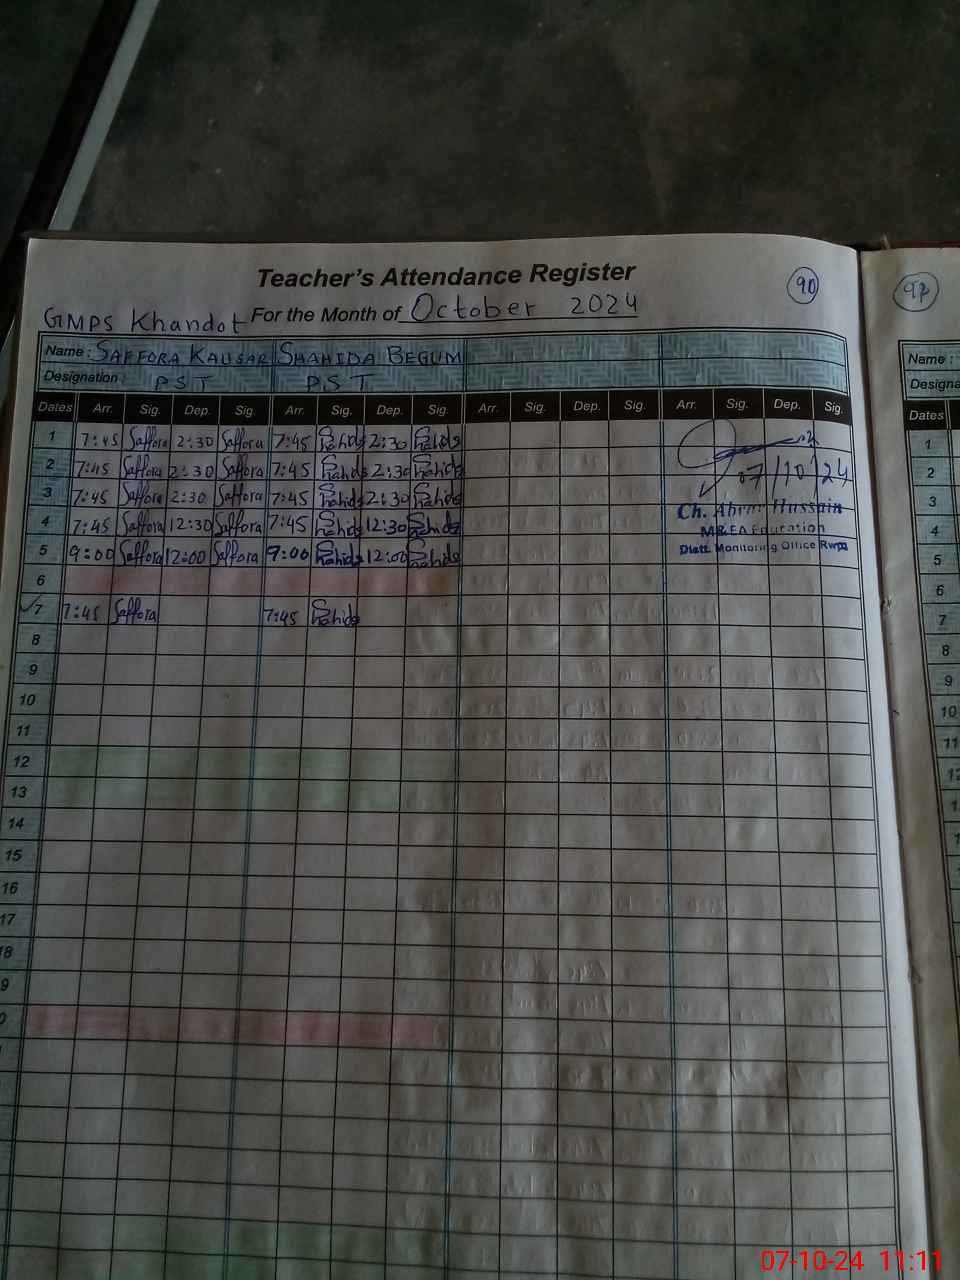 Teacher's Attendance Register
90
92
GMPS Khandot For the Month of October 2024
Name: SAFFORA KAUSAR SHAHIDA BEGUM
Name:
Designation: P.S.T P.S.T
Designa
Dates Arr. Sig. Dep. Sig. Arr. Sig. Dep. Sig. Arr. Sig. Dep. Sig. Arr. Sig. Dep. Sig.
Dates
1 7:45 Saffora 2:30 Saffora 7:45 Shahida 2:30 Shahida
2 7:45 Saffora 2:30 Saffora 7:45 Shahida 2:30 Shahida
07/10/24
3 7:45 Saffora 2:30 Saffora 7:45 Shahida 2:30 Shahida
Ch. Abrar Hussain
4 7:45 Saffora 12:30 Saffora 7:45 Shahida 12:30 Shahida
M&EA Education
5 9:00 Saffora 12:00 Saffora 9:00 Shahida 12:00 Shahida
Distt. Monitoring Office Rwp
6
7 7:45 Saffora 7:45 Shahida
8
9
10
11
12
13
14
15
16
17
18
9
0
1
2
3
4
5
6
7
8
9
10
11
12
1
07-10-24 11:11